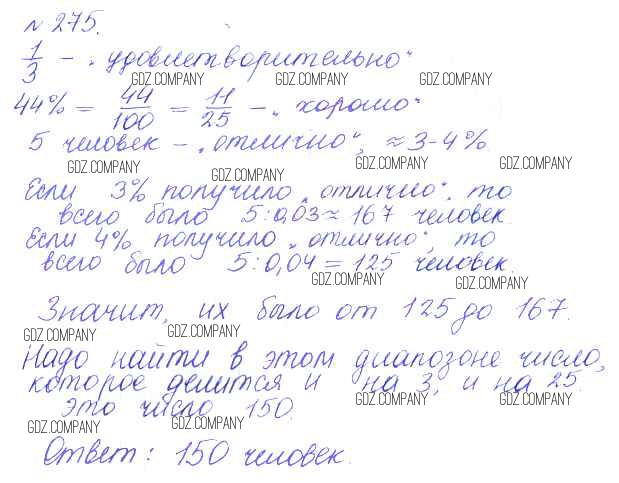 № 275.
1/3 – „удовлетворительно“
GDZ.COMPANY GDZ.COMPANY GDZ.COMPANY
44% = 44/100 = 11/25 – „хорошо“
5 человек – „отлично“, ≈ 3-4%
GDZ.COMPANY GDZ.COMPANY GDZ.COMPANY GDZ.COMPANY
Если 3% получило „отлично“, то
всего было 5:0,03 ≈ 167 человек.
Если 4% получило „отлично“, то
всего было 5:0,04 = 125 человек.
GDZ.COMPANY GDZ.COMPANY
Значит, их было от 125 до 167.
GDZ.COMPANY GDZ.COMPANY
Надо найти в этом диапозоне число,
которое делится и на 3, и на 25.
GDZ.COMPANY GDZ.COMPANY
это число 150.
GDZ.COMPANY GDZ.COMPANY
Ответ: 150 человек.